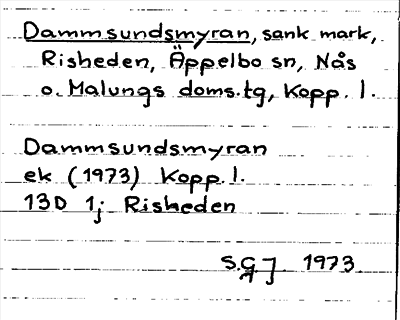 Dammsundsmyran, sank mark,
Risheden, Äppelbo sn, Nås
o. Malungs doms.tg, Kopp. l.
Dammsundsmyran
ek (1973) Kopp. l.
13D 1j Risheden
1973